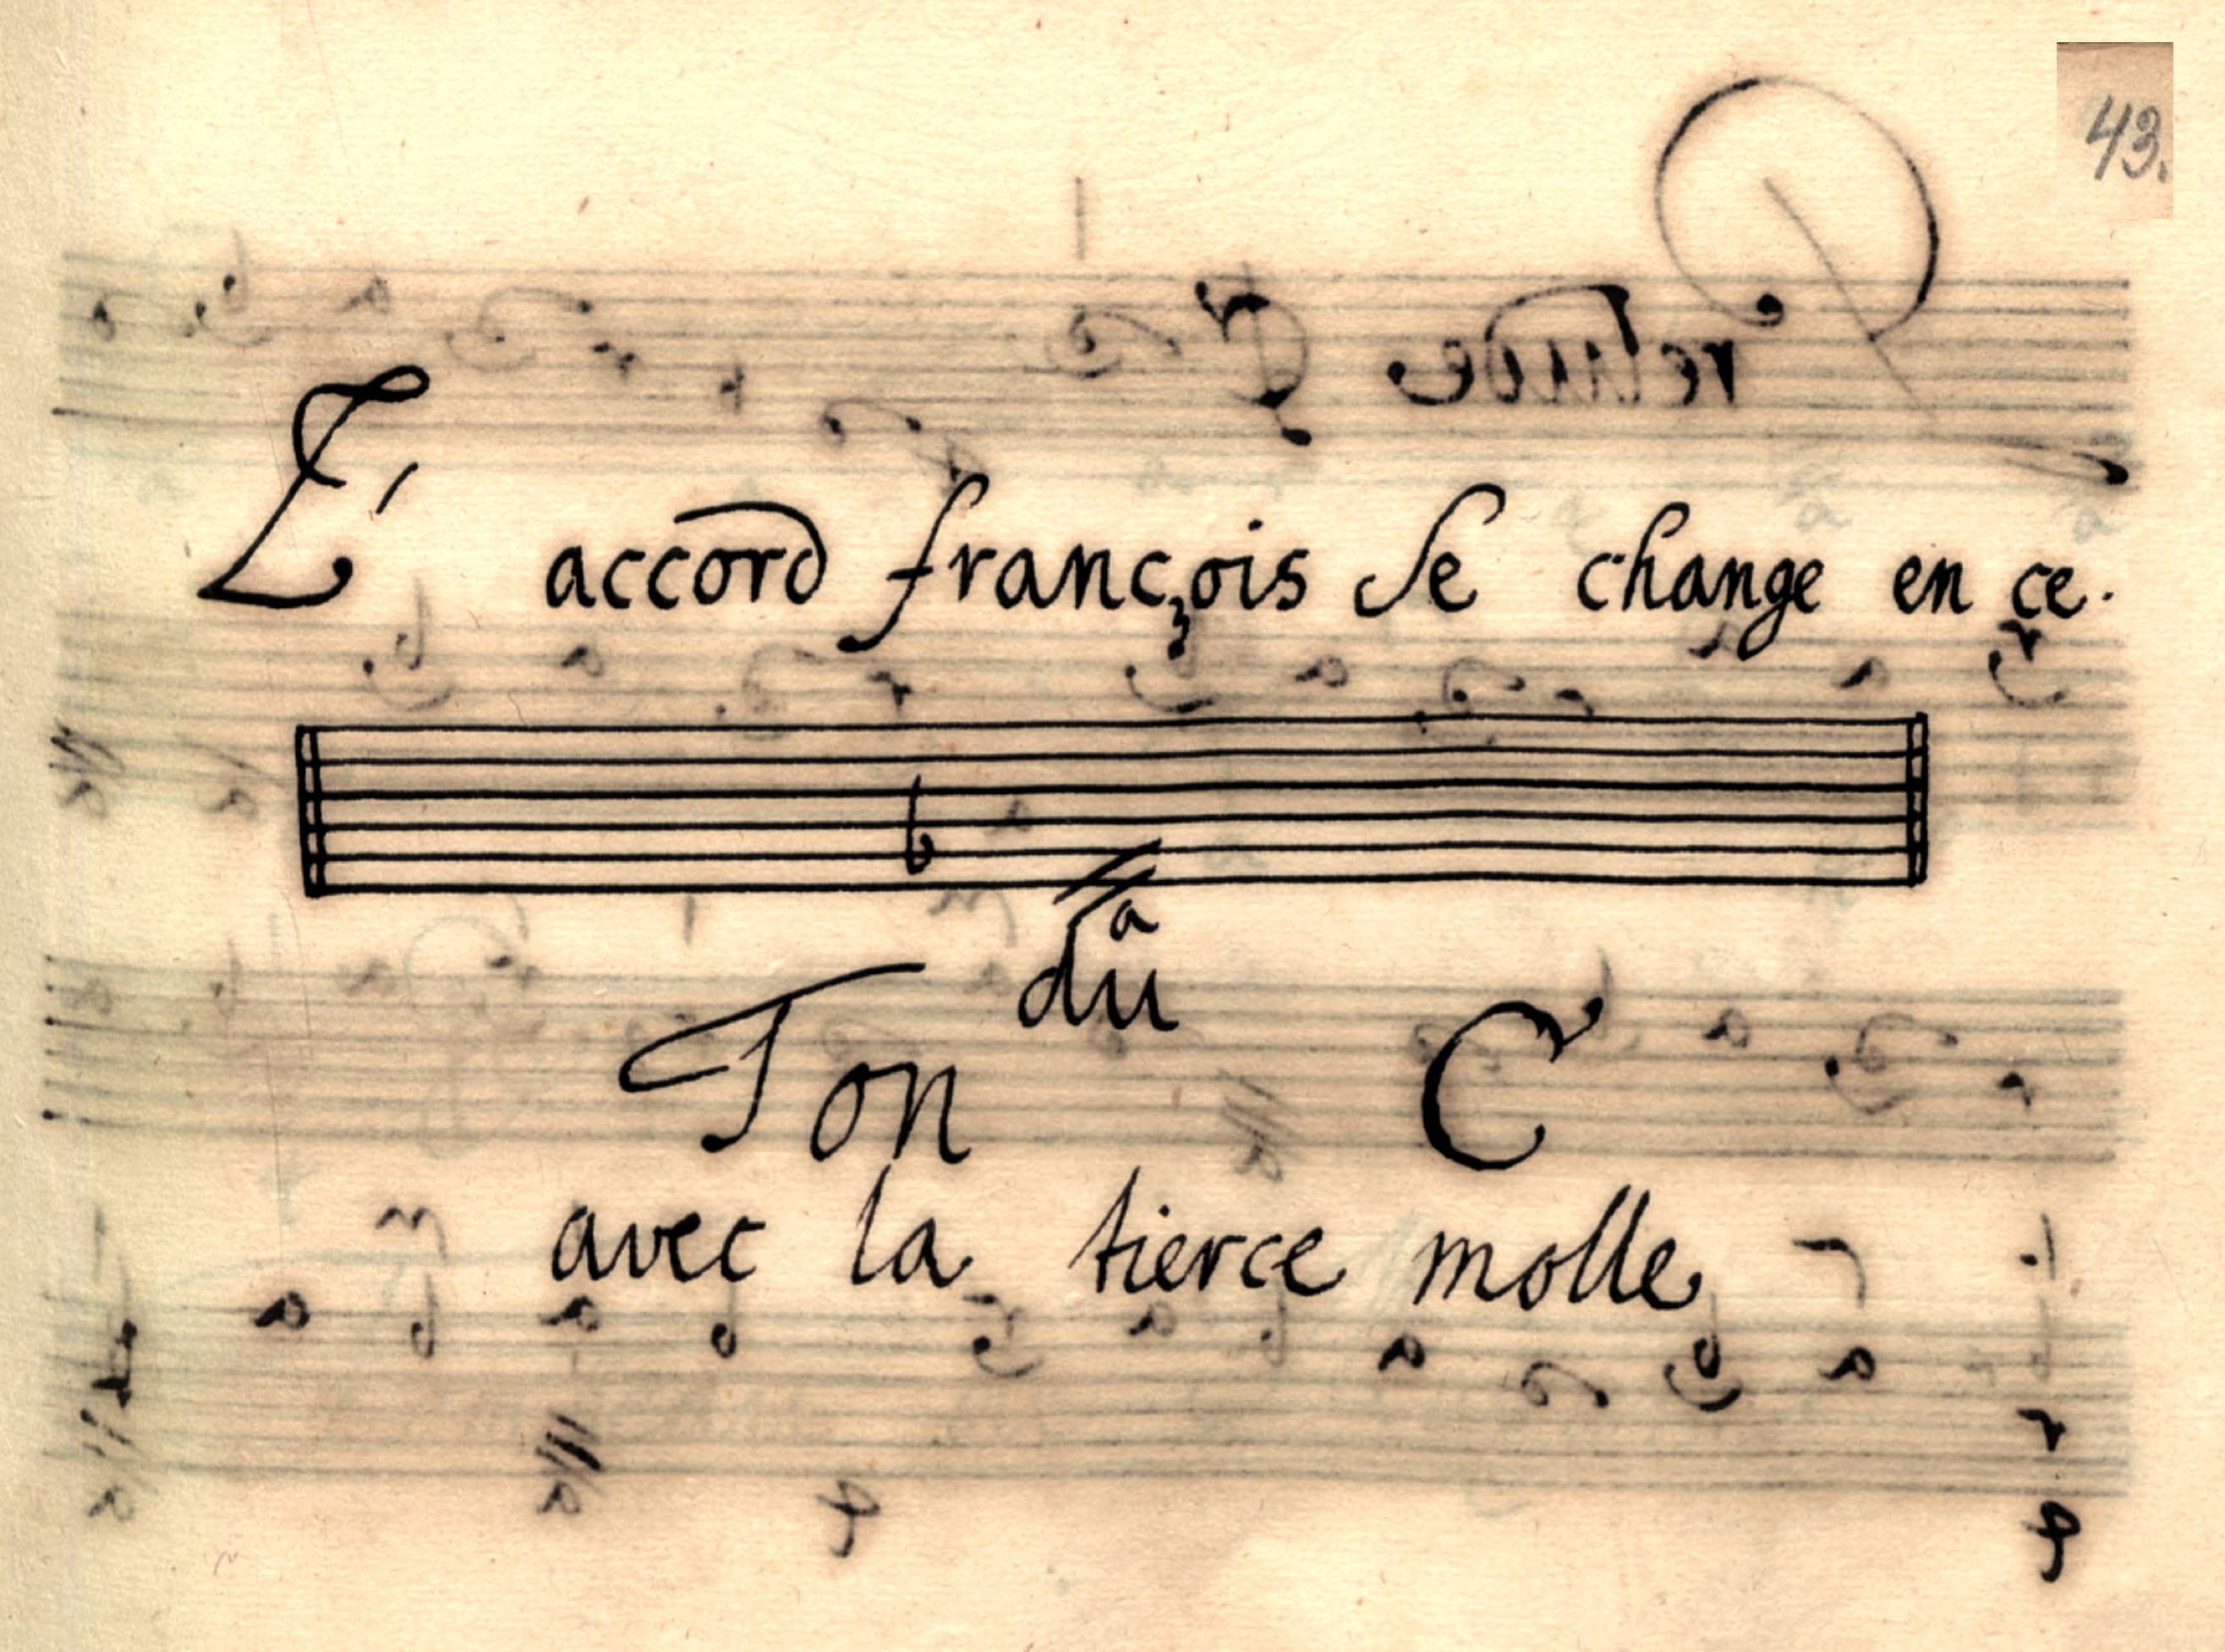 43.
L'accord françois Se change en ce.
b
//a
du
Ton C
avec la tierce molle